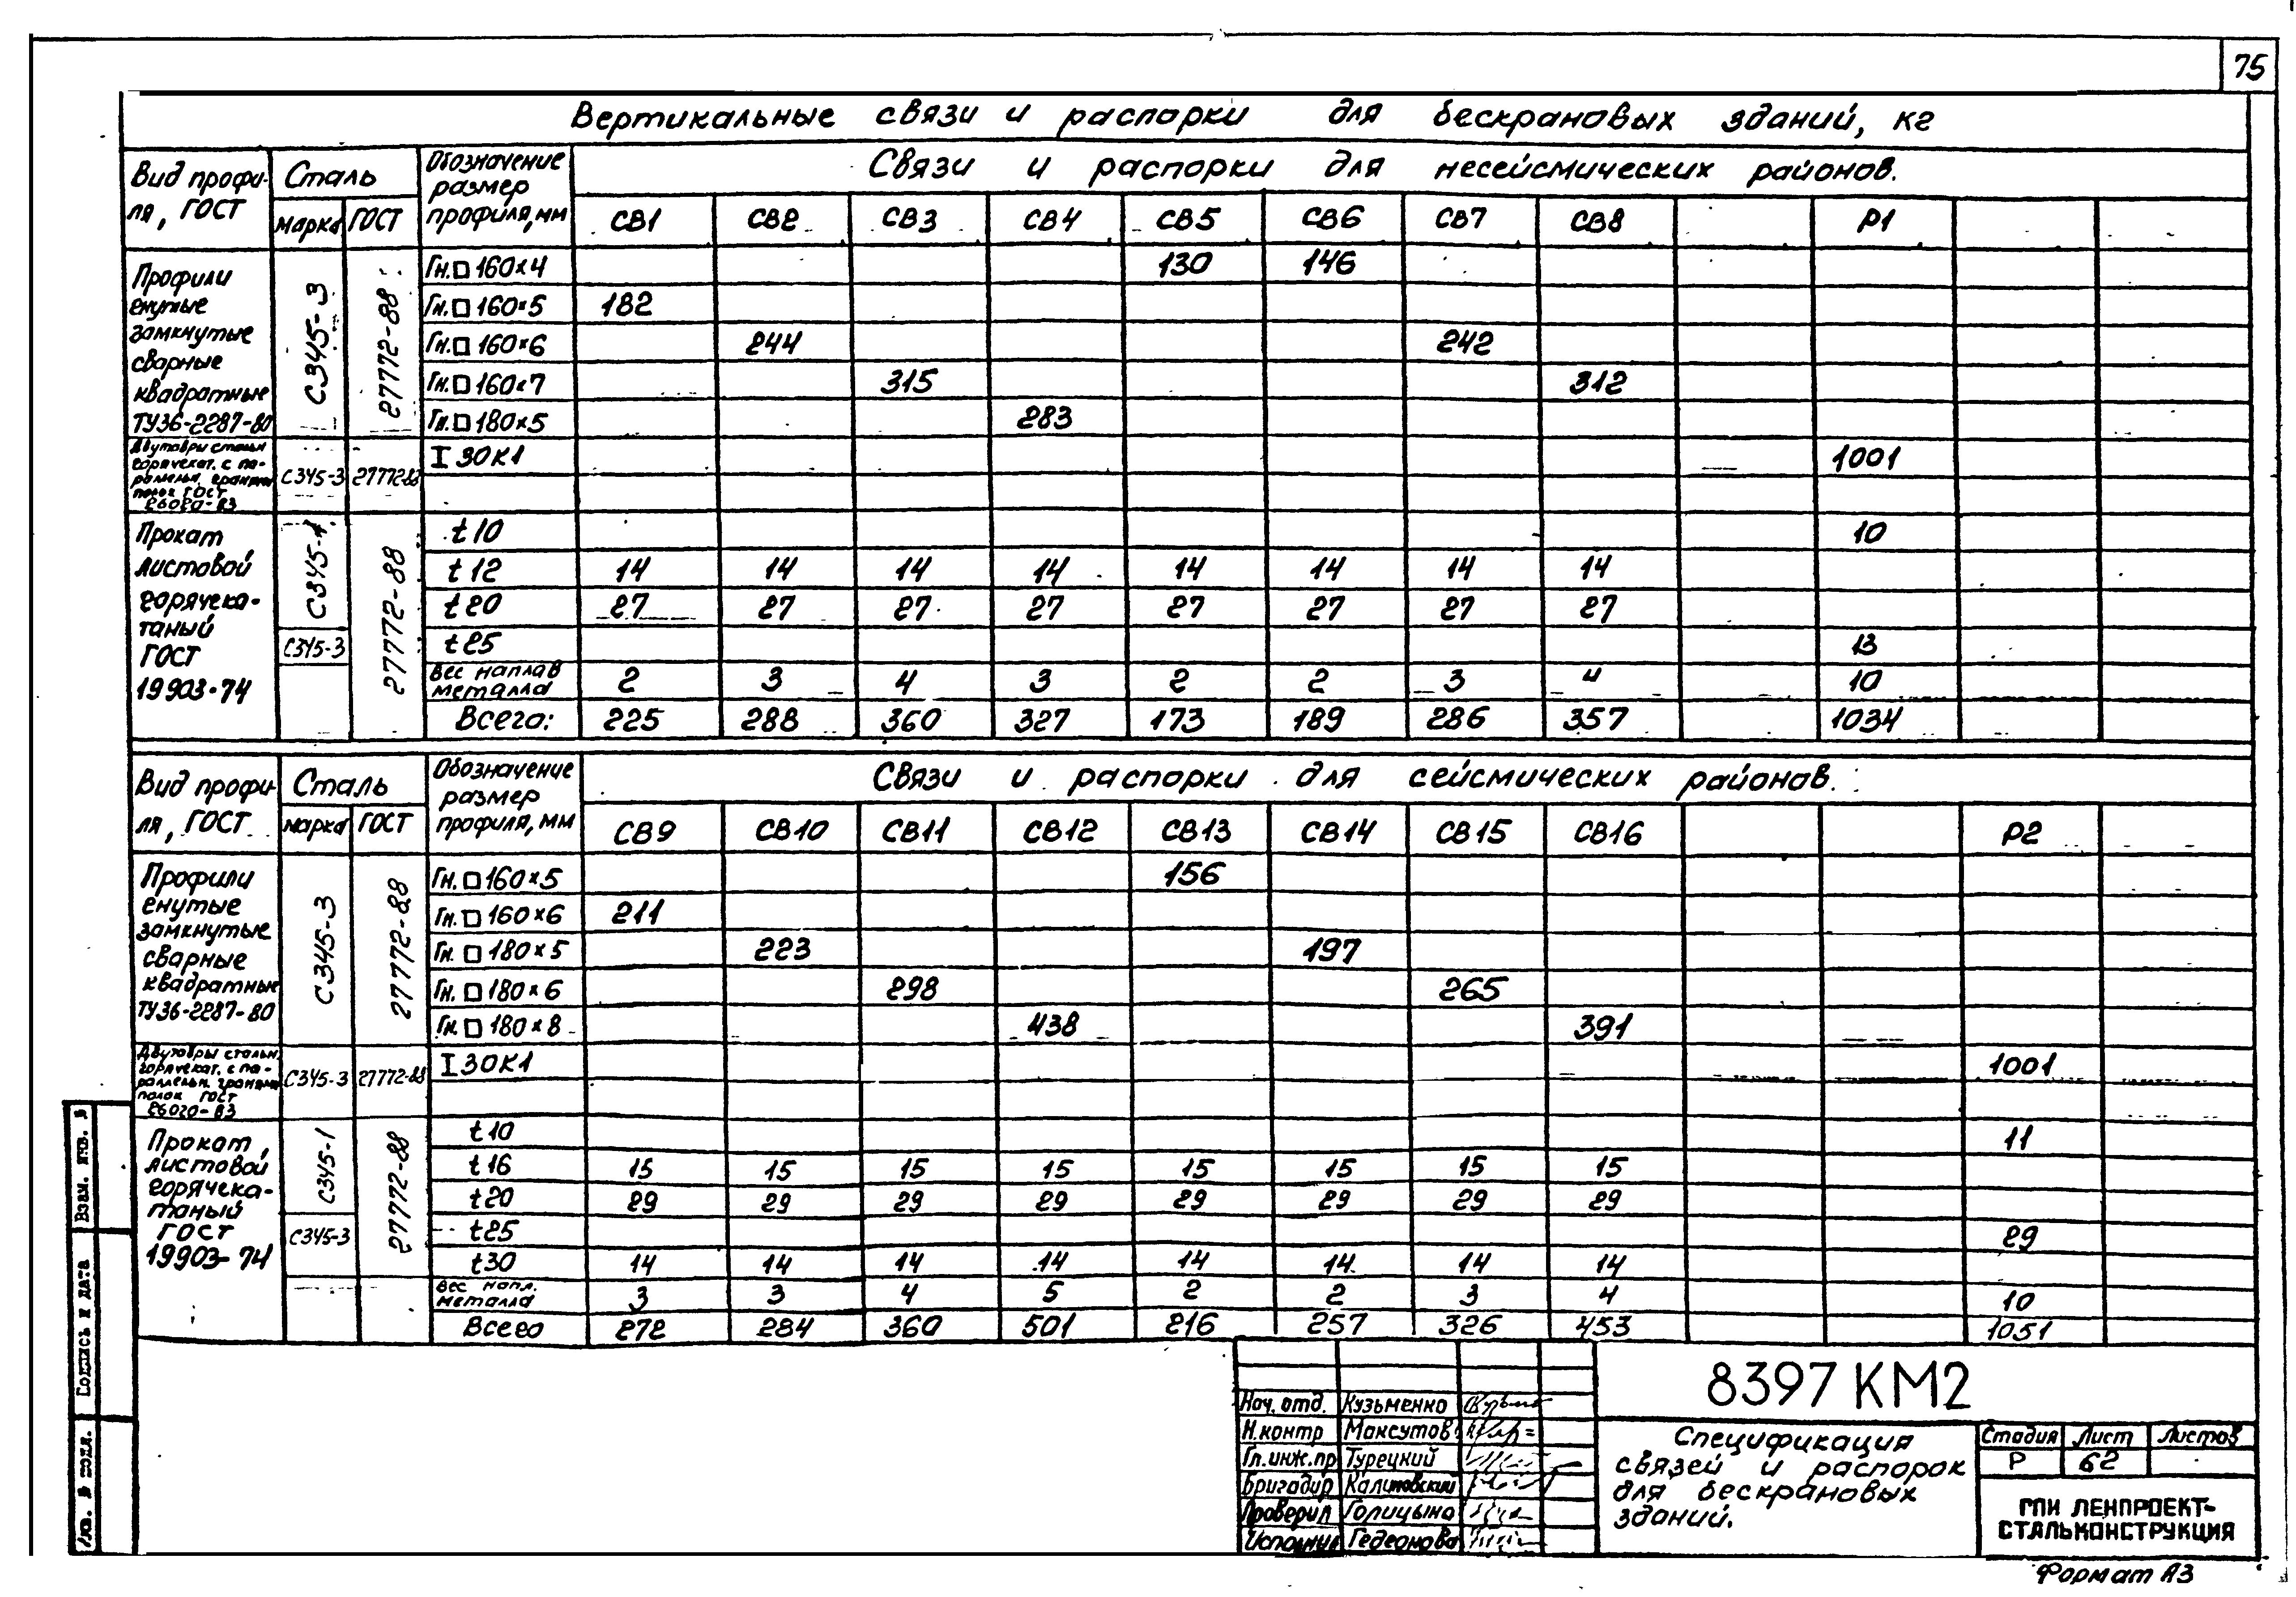 75
Вертикальные связи и распорки для бескрановых зданий, кг
Вид профи-
ля, ГОСТ
Сталь
марка ГОСТ
Обозначение
размер
профиля, мм
Связи и распорки для несейсмических районов.
СВ1 СВ2 СВ3 СВ4 СВ5 СВ6 СВ7 СВ8 Р1
Профили
гнутые
замкнутые
сварные
квадратные
ТУ36-2287-80
С345-3
27772-88
Гн.□160×4 130 146
Гн.□160×5 182
Гн.□160×6 244 242
Гн.□160×7 315 312
Гн.□180×5 283
Двутавры стальн
горячекат. с па-
раллельн. гранями
полок ГОСТ
26020-83
С345-3 27772-88
I 30К1 1001
Прокат
листовой
горячека-
таный
ГОСТ
19903-74
С345-1
С345-3
27772-88
t10 10
t12 14 14 14 14 14 14 14 14
t20 27 27 27 27 27 27 27 27
t25 13
Вес наплав
металла 2 3 4 3 2 2 3 4 10
Всего: 225 288 360 327 173 189 286 357 1034
Вид профи-
ля, ГОСТ
Сталь
марка ГОСТ
Обозначение
размер
профиля, мм
Связи и распорки для сейсмических районов.
СВ9 СВ10 СВ11 СВ12 СВ13 СВ14 СВ15 СВ16 Р2
Профили
гнутые
замкнутые
сварные
квадратные
ТУ36-2287-80
С345-3
27772-88
Гн.□160×5 156
Гн.□160×6 211
Гн.□180×5 223 197
Гн.□180×6 298 265
Гн.□180×8 438 391
Двутавры стальн.
горячекат. с па-
раллельн. гранями
полок ГОСТ
26020-83
С345-3 27772-88
I 30К1 1001
Прокат
листовой
горячека-
таный
ГОСТ
19903-74
С345-1
С345-3
27772-88
t10 11
t16 15 15 15 15 15 15 15 15
t20 29 29 29 29 29 29 29 29
t25 29
t30 14 14 14 14 14 14 14 14
Вес напл.
металла 3 3 4 5 2 2 3 4 10
Всего 272 284 360 501 216 257 326 453 1051
Взам. инв. №
Подпись и дата
Инв. № подл.
Нач. отд. Кузьменко
Н.контр Максутов
Гл.инж.пр Турецкий
Бригадир Калиновский
Проверил Голицына
Исполнил Гедеонова
8397 КМ2
Спецификация
связей и распорок
для бескрановых
зданий.
Стадия Лист Листов
Р 62
ГПИ ЛЕНПРОЕКТ-
СТАЛЬКОНСТРУКЦИЯ
Формат А3